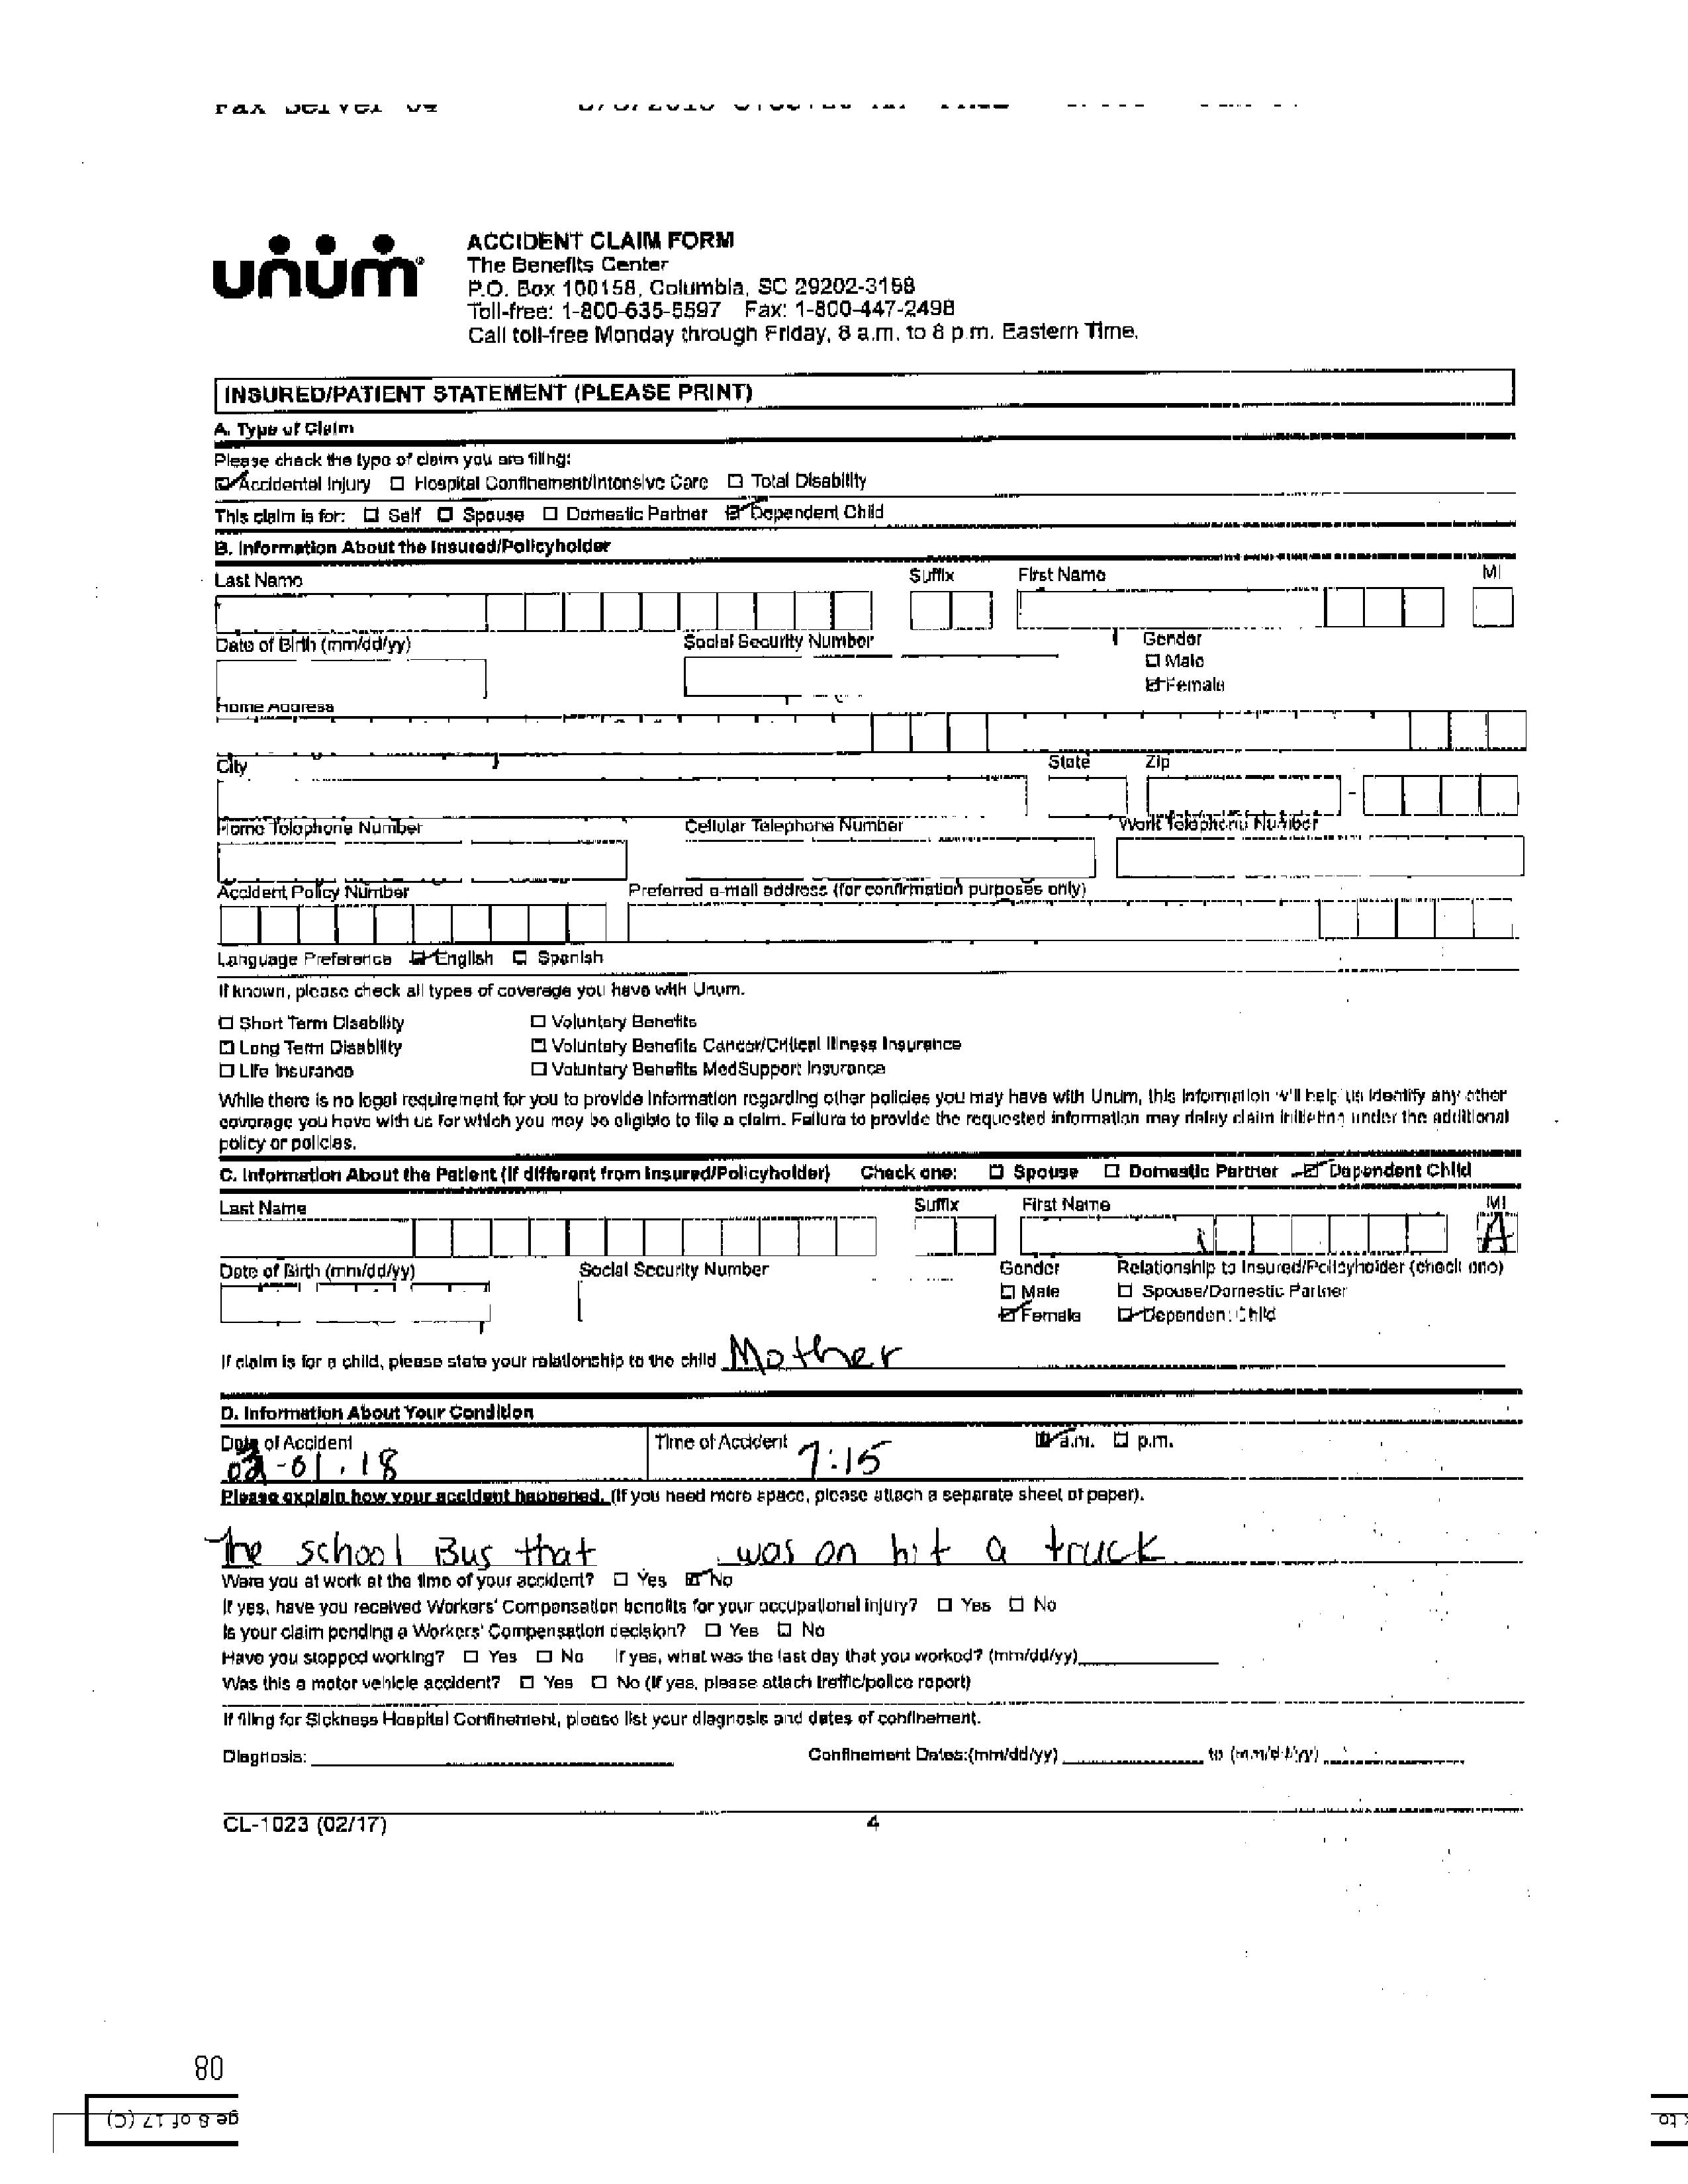 Fax Server 04
unum
ACCIDENT CLAIM FORM
The Benefits Center
P.O. Box 100158, Columbia, SC 29202-3158
Toll-free: 1-800-635-5597 Fax: 1-800-447-2498
Call toll-free Monday through Friday, 8 a.m. to 8 p.m. Eastern Time.
INSURED/PATIENT STATEMENT (PLEASE PRINT)
A. Type of Claim
Please check the type of claim you are filing:
☑ Accidental Injury ☐ Hospital Confinement/Intensive Care ☐ Total Disability
This claim is for: ☐ Self ☐ Spouse ☐ Domestic Partner ☑ Dependent Child
B. Information About the Insured/Policyholder
Last Name Suffix First Name MI
Date of Birth (mm/dd/yy) Social Security Number Gender
☐ Male
☑ Female
Home Address
City State Zip
Home Telephone Number Cellular Telephone Number Work Telephone Number
Accident Policy Number Preferred e-mail address (for confirmation purposes only)
Language Preference ☑ English ☐ Spanish
If known, please check all types of coverage you have with Unum.
☐ Short Term Disability ☐ Voluntary Benefits
☐ Long Term Disability ☐ Voluntary Benefits Cancer/Critical Illness Insurance
☐ Life Insurance ☐ Voluntary Benefits MedSupport Insurance
While there is no legal requirement for you to provide information regarding other policies you may have with Unum, this information will help us identify any other
coverage you have with us for which you may be eligible to file a claim. Failure to provide the requested information may delay claim initiation under the additional
policy or policies.
C. Information About the Patient (If different from Insured/Policyholder) Check one: ☐ Spouse ☐ Domestic Partner ☑ Dependent Child
Last Name Suffix First Name MI
A
Date of Birth (mm/dd/yy) Social Security Number Gender Relationship to Insured/Policyholder (check one)
☐ Male ☐ Spouse/Domestic Partner
☑ Female ☑ Dependent Child
If claim is for a child, please state your relationship to the child Mother
D. Information About Your Condition
Date of Accident Time of Accident 7:15 ☑ a.m. ☐ p.m.
02-01.18
Please explain how your accident happened. (If you need more space, please attach a separate sheet of paper).
The school Bus that was on hit a truck
Were you at work at the time of your accident? ☐ Yes ☑ No
If yes, have you received Workers' Compensation benefits for your occupational injury? ☐ Yes ☐ No
Is your claim pending a Workers' Compensation decision? ☐ Yes ☐ No
Have you stopped working? ☐ Yes ☐ No If yes, what was the last day that you worked? (mm/dd/yy)
Was this a motor vehicle accident? ☐ Yes ☐ No (If yes, please attach traffic/police report)
If filing for Sickness Hospital Confinement, please list your diagnosis and dates of confinement.
Diagnosis: Confinement Dates:(mm/dd/yy) to (mm/dd/yy)
CL-1023 (02/17) 4
80
ge 8 of 17 (C)